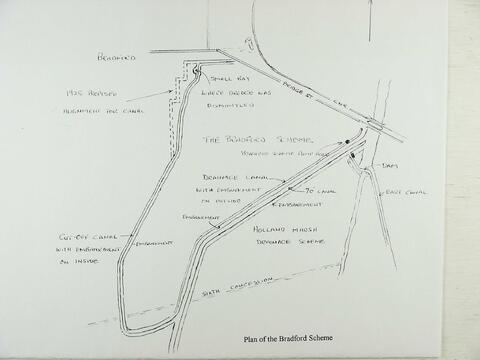 BRADFORD
SMALL BAY
WHERE DREDGE WAS
DISMANTLED
1925 PROPOSED
ALIGNMENT FOR CANAL
BRIDGE ST
THE BRADFORD SCHEME
DAM
EAST CANAL
DRAINAGE CANAL
WITH EMBANKMENT
ON
TO CANAL
EMBANKMENT
EMBANKMENT
CUT-OFF CANAL
WITH EMBANKMENT
ON INSIDE
EMBANKMENT
HOLLAND MARSH
DRAINAGE SCHEME
SIXTH CONCESSION
Plan of the Bradford Scheme